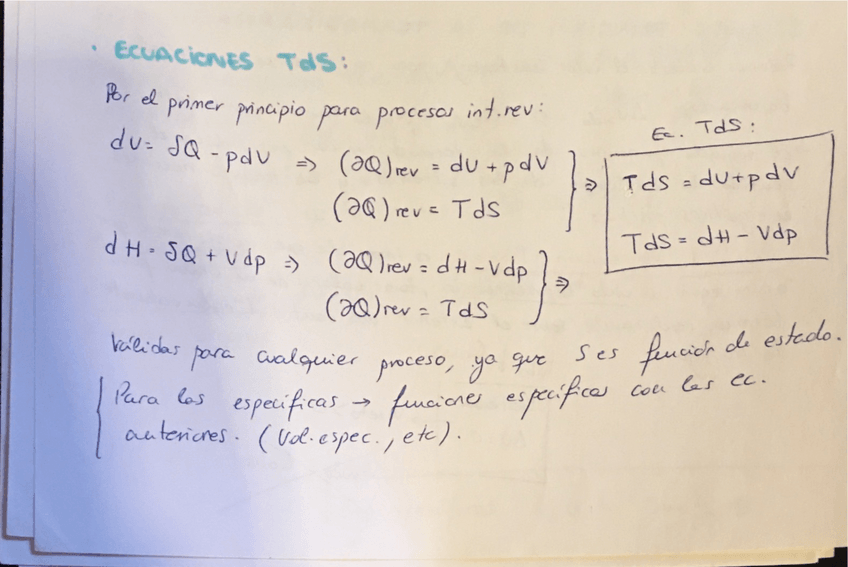 · ECUACIONES TdS:
Por el primer principio para procesos int.rev:
dU = δQ - pdV ⇒ (∂Q)rev = dU + pdV
(∂Q)rev = TdS
Ec. TdS:
TdS = dU + pdV
TdS = dH - Vdp
dH = δQ + Vdp ⇒ (∂Q)rev = dH - Vdp
(∂Q)rev = TdS
Válidas para cualquier proceso, ya que S es función de estado.
Para las específicas → funciones específicas con las ec.
anteriores. (Vol. espec., etc).